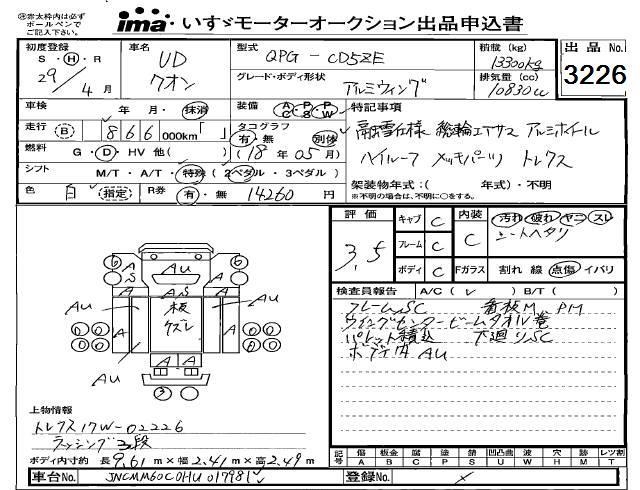 ㊟赤太枠内は必ず
ボールペンで
ご記入下さい。
ima いすゞモーターオークション出品申込書
初度登録 S・H・R 29年 4月
車名 UD クオン
型式 QPG - CD5ZE
グレード・ボディ形状 アルミウィング
積載(kg) 13300kg
排気量(cc) 10830cc
出品No. 3226
車検 年 月・抹消
装備 AC PS PW
特記事項
走行 B 866 000km「 」
タコグラフ 有・無 別体
融雪仕様 総輪エアサス アルミホイール
燃料 G・D・HV 他( ) (18年05月)
ハイルーフ メッキパーツ トレクス
シフト M/T・A/T・特殊(2ペダル・3ペダル)
架装物年式:( 年式)・不明
※不明の場合は、不明に○をする。
色 白 指定 R券 有・無 14260円
評価 3.5
キャブ C 内装 C 汚れ 破れ ヤニ スレ
シートヘタリ
フレーム C
ボディ C Fガラス 割れ 線 点傷 イバリ
検査員報告 A/C(レ) B/T( )
フレームSC 看板M PM
ウイングセンタービームタオル巻
パレット積込 下廻りSC
ボデ内 AU
6 A A 6
AU
A A
AS
AU A 板 A AU
ズレ
6 6
A A
AU
3
上物情報
トレクス17W-02226
ラッシング2段
ボディ内寸約 長9.61m×幅2.41m×高2.49m
記号 傷 A 板金 B 腐 C 塗 P 錆 S 凹凸曲 U 波 W 穴 H 跡 M レツ割 T
車台No. JNCMM60C0HU017981
登録No.